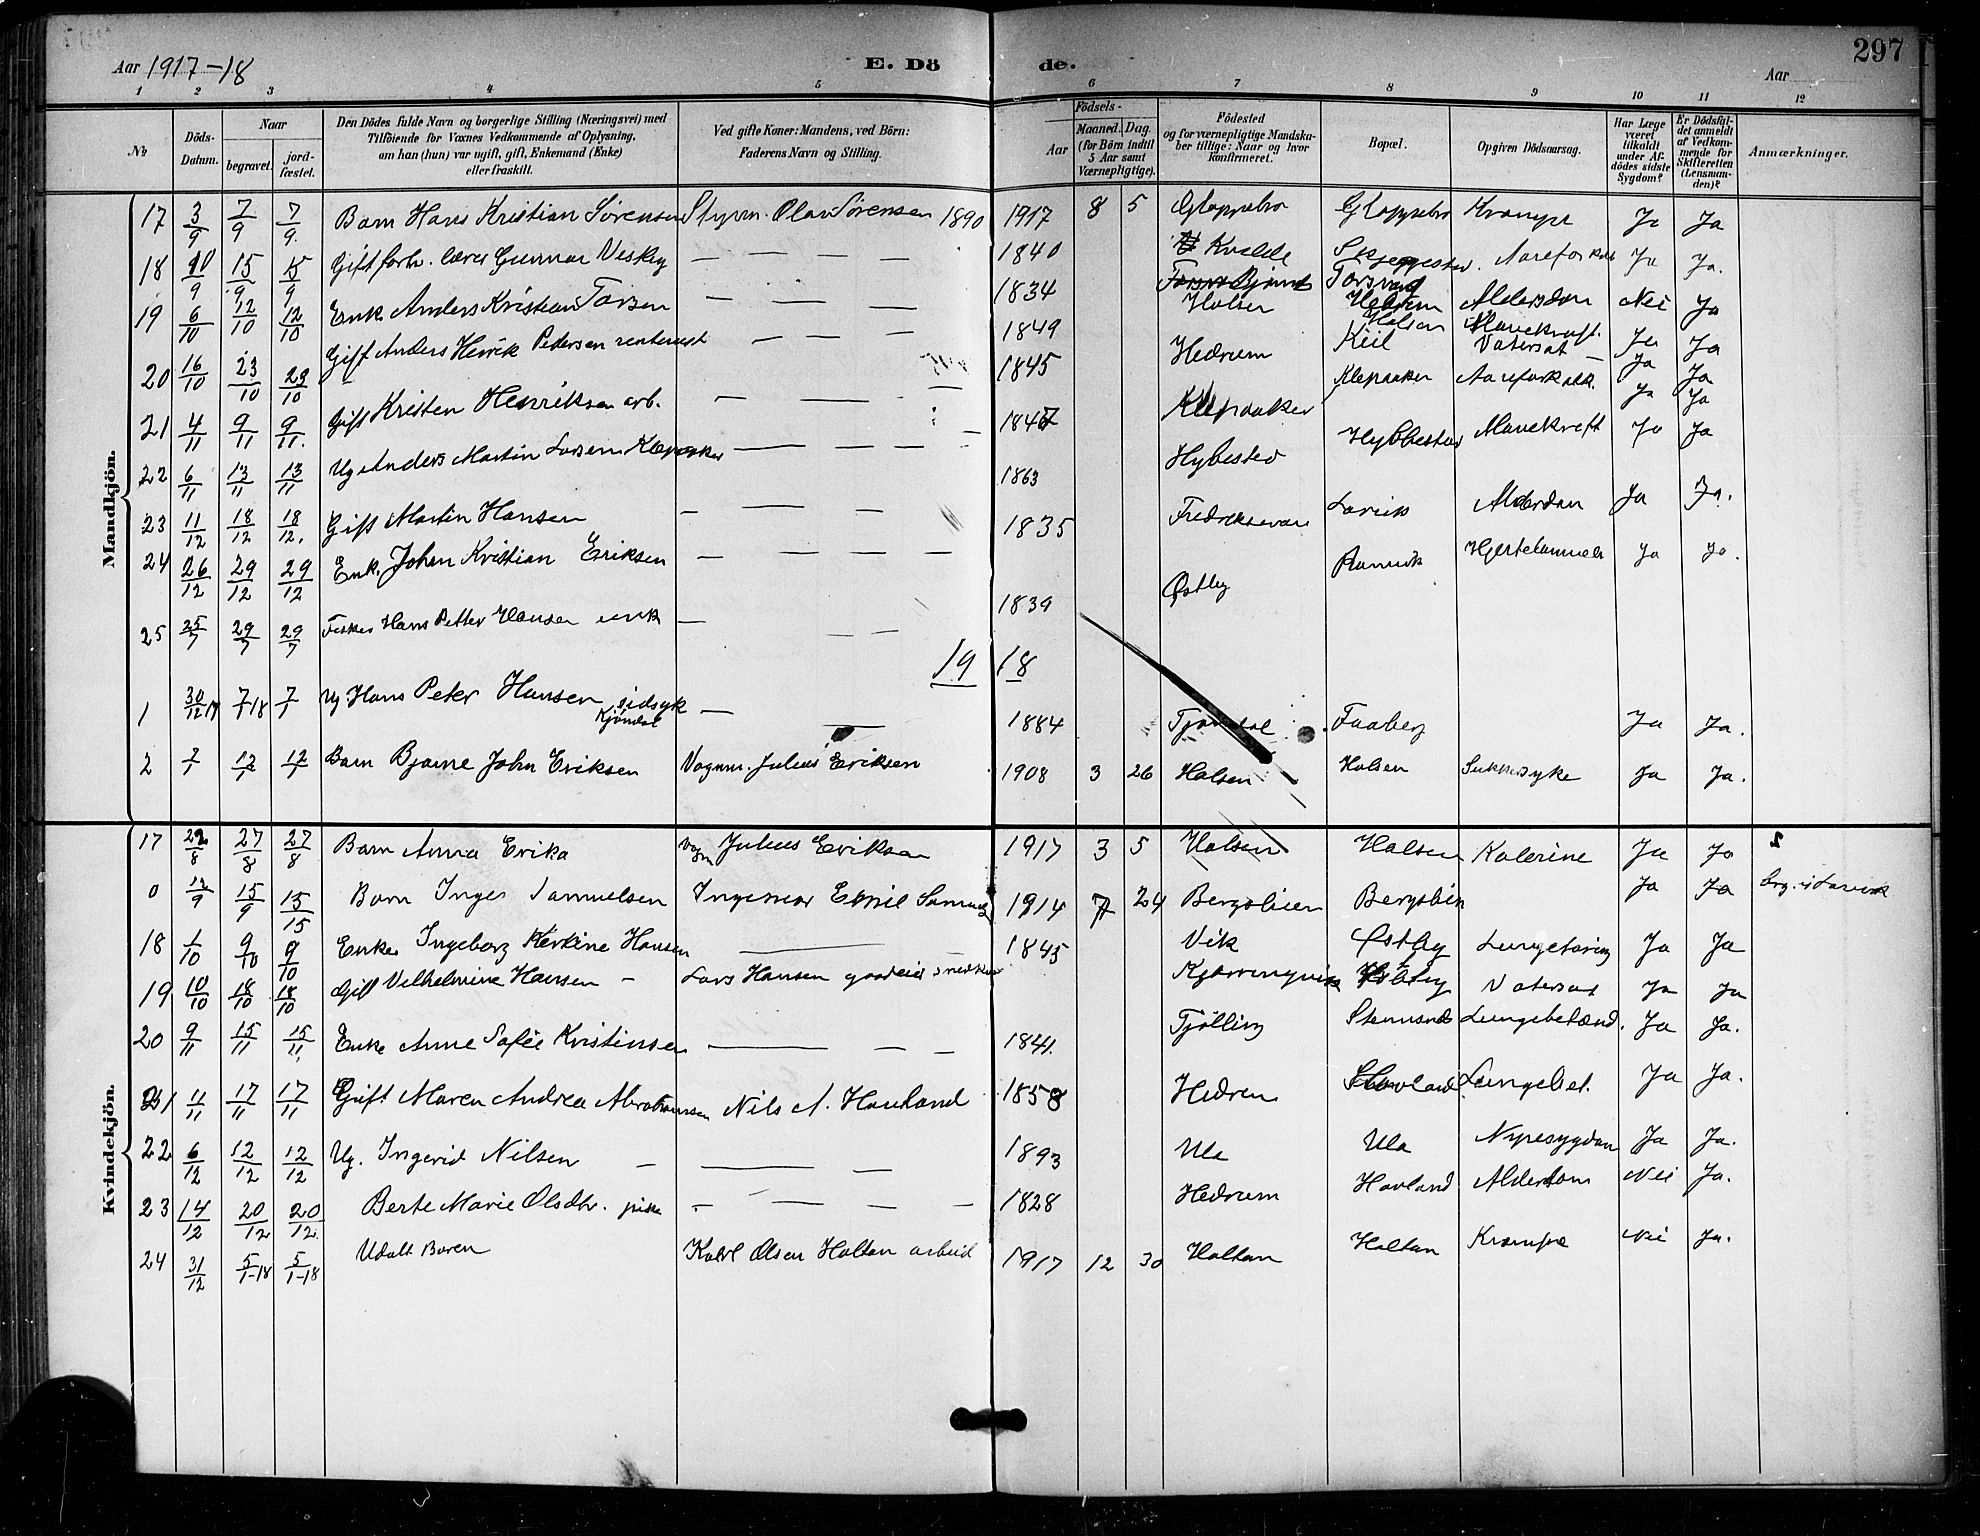 Aar 1917-18
E. Dö
de.
Aar
297
1 2 3 4 5 6 7 8 9 10 11 12
Nr.
Döds-Datum.
Naar
begravet.
jord-fæstet.
Den Dödes fulde Navn og borgerlige Stilling (Næringsvei) med
Tilföiende for Voxnes Vedkommende af Oplysning,
om han (hun) var ugift, gift, Enkemand (Enke)
eller fraskilt.
Ved gifte Koner: Mandens, ved Börn:
Faderens Navn og Stilling.
Födsels-
Aar
Maaned. Dag.
(for Börn indtil
5 Aar samt
Værnepligtige).
Födested
og for værnepligtige Mandska-
ber tillige: Naar og hvor
konfirmeret.
Bopæl.
Opgiven Dödsaarsag.
Har Læge
været
tilkaldt
under Af-
dödes sidste
Sygdom?
Er Dödsfal-
det anmeldt
af Vedkom-
mende for
Skifteretten
(Lensman-
den)?
Anmærkninger.
Mandkjön.
17 3/9 7/9 7/9. Barn Hans Kristian Sørensen Styrm. Olav Sørensen 1890 1917 8 5 Gloppebro Gloppebro Krampe Ja Ja
18 10/9 15/9 15/9 Gift forh. lærer Gunnar Vesty — — — — 1840 Kvelde Aareforkalk Ja Ja.
19 6/10 12/10 12/10 Enk. Anders Kristian Torsen — — — 1834 Holsen Hedrum Alderdom Nei Ja
20 16/10 23/10 23/10 Gift Anders Henrik Pedersen rentenist — — — 1849 Hedrum Holsen Mavekræft. Ja Ja
1845 Keil Vatersot — Ja Ja
21 4/11 9/11 9/11. Gift Kristen Henriksen arb. — — — 1847 Klepaaker Klepaaker Aareforkalk. Ja Ja
22 6/11 13/11 13/11 Ug Anders Martin Larsen Klepaaker — — — — 1863 Hybestad Hybbestad Mavekreft Ja Ja
23 11/12 18/12 18/12. Gift Martin Hansen — — — 1835 Fredriksværn Larvik Alderdom Ja Ja.
24 26/12 29/12 29/12 Enk. Johan Kristian Eriksen — — — — 1839 Østby Ramvik Hjertelammelse Ja Ja.
25 25/7 29/7 29/7 Fisker Hans Petter Hansen enk — — —
1918
1 30/12 17 7/1 18 7/1 Ug. Hans Peter Hansen sidsyk Kjøndal — — 1884 Tjøndal Faaberg Ja Ja.
2 7/1 12/1 12/1 Barn Bjarne John Eriksen Vognm. Julius Eriksen 1908 3 26 Holsen Holsen Sukkersyke Ja Ja.
Kvindekjön.
17 22/8 27/8 27/8 Barn Anna Erika Vogn Julius Eriksen 1917 3 5 Halsen Halsen Kolerine Ja Ja
0 12/9 15/9 15/15 Barn Inger Samuelsen Emil Samuels 1914 7 24 Bergslien Bergslien Ja Ja beg. i Larvik
18 1/10 9/10 9/10 Enke Ingeborg Kirstine Hansen — 1845 Vik Østby Lungetæring Ja Ja
19 10/10 18/10 18/10 Gift Vilhelmine Hansen — Lars Hansen gaardeier snedker Kjærringvik Østby Vatersot Ja Ja
20 9/11 15/11 15/11 Enke Anne Sofie Kristinsen — — — 1841. Tjölling Lungebetænd. Ja Ja.
21 11/11 17/11 17/11 Gift Maren Andrea Abrahamsen Nils A. Hauland 1858 Hedrum Hovland Lungebet. Ja Ja.
22 6/12 12/12 12/12 Ug. Ingerid Nilsen — — — 1893 Ula Ula Nyresygdom Ja Ja.
23 14/12 20/12 20/12. Berte Marie Olsdtr. pike — — — — 1828 Hedrum Hovland Alderdom Nei Ja.
24 31/12 5/1-18 5/1-18 Udøbt Baren Karl Olsen Holtan arbeid 1917 12 30 Holtan Holtan Krampe Nei Ja.